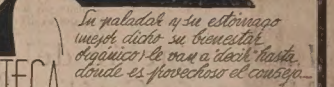 Su paladar y su estómago
(mejor dicho su bienestar
orgánico) le van a decir hasta
donde es provechoso el consejo_
TECA